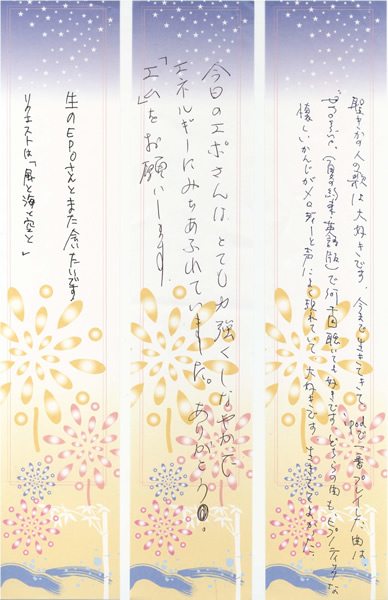 の人の歌は大好きです。今まで生きてきてipodで一番プレイした曲は
(夏の約束・英語版)で何十回聴いても好きです。どちらの曲も
懐しいかんじがメロディーと声によく現れていて、大好きです
今日のエポさんはとても力強くしなやかで
エネルギーにみちあふれていました。ありがとう。
「エム」をお願いします。
生のEPOさんとまた会いたいです
リクエストは「風と海と空と」